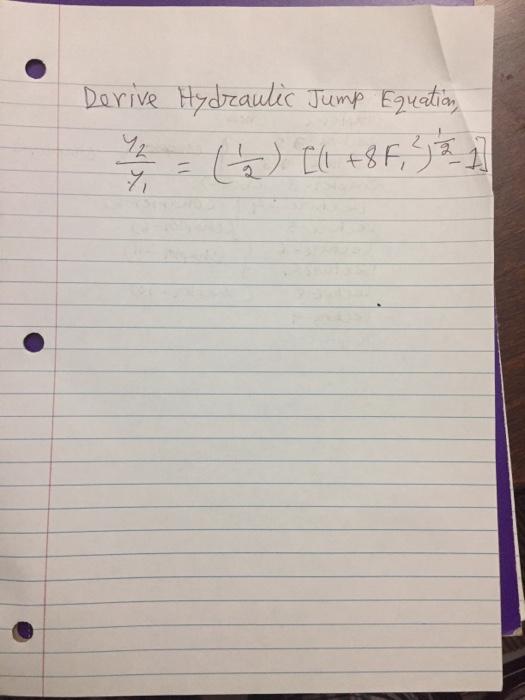 Derive Hydraulic Jump Equation,
y₂/y₁ = (1/2) [(1 + 8F₁²)^(1/2) - 1]